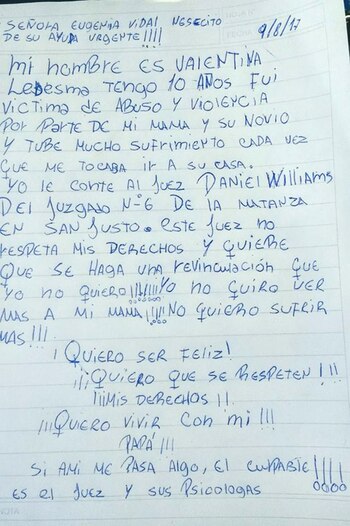 SEÑORA EUGENIA VIDAL NESECITO
DE SU AYUDA URGENTE!!!! 9/8/17
MI NOMBRE ES VALENTINA
LEDESMA TENGO 10 AÑOS FUI
VICTIMA DE ABUSO Y VIOLENCIA
POR PARTE DE MI MAMA Y SU NOVIO
Y TUBE MUCHO SUFRIMIENTO CADA VEZ
QUE ME TOCABA IR A SU CASA.
YO LE CONTE AL JUEZ DANIEL WILLIAMS
DEL JUZGADO Nº6 DE LA MATANZA
EN SAN JUSTO. ESTE JUEZ NO
RESPETA MIS DERECHOS Y QUIERE
QUE SE HAGA UNA REVINCULACIÓN QUE
YO NO QUIERO!!!!!!! YO NO QUIRO VER
MAS A MI MAMA!!!! NO QUIERO SUFRIR
MAS!!!
¡QUIERO SER FELIZ!
¡¡¡QUIERO QUE SE RESPETEN!!!
¡¡MIS DERECHOS!!
¡¡¡QUIERO VIVIR CON MI!!!
PAPÁ!!!
SI AMI ME PASA ALGO, EL CULPABLE!!!!
ES EL JUEZ Y SUS PSICOLOGAS